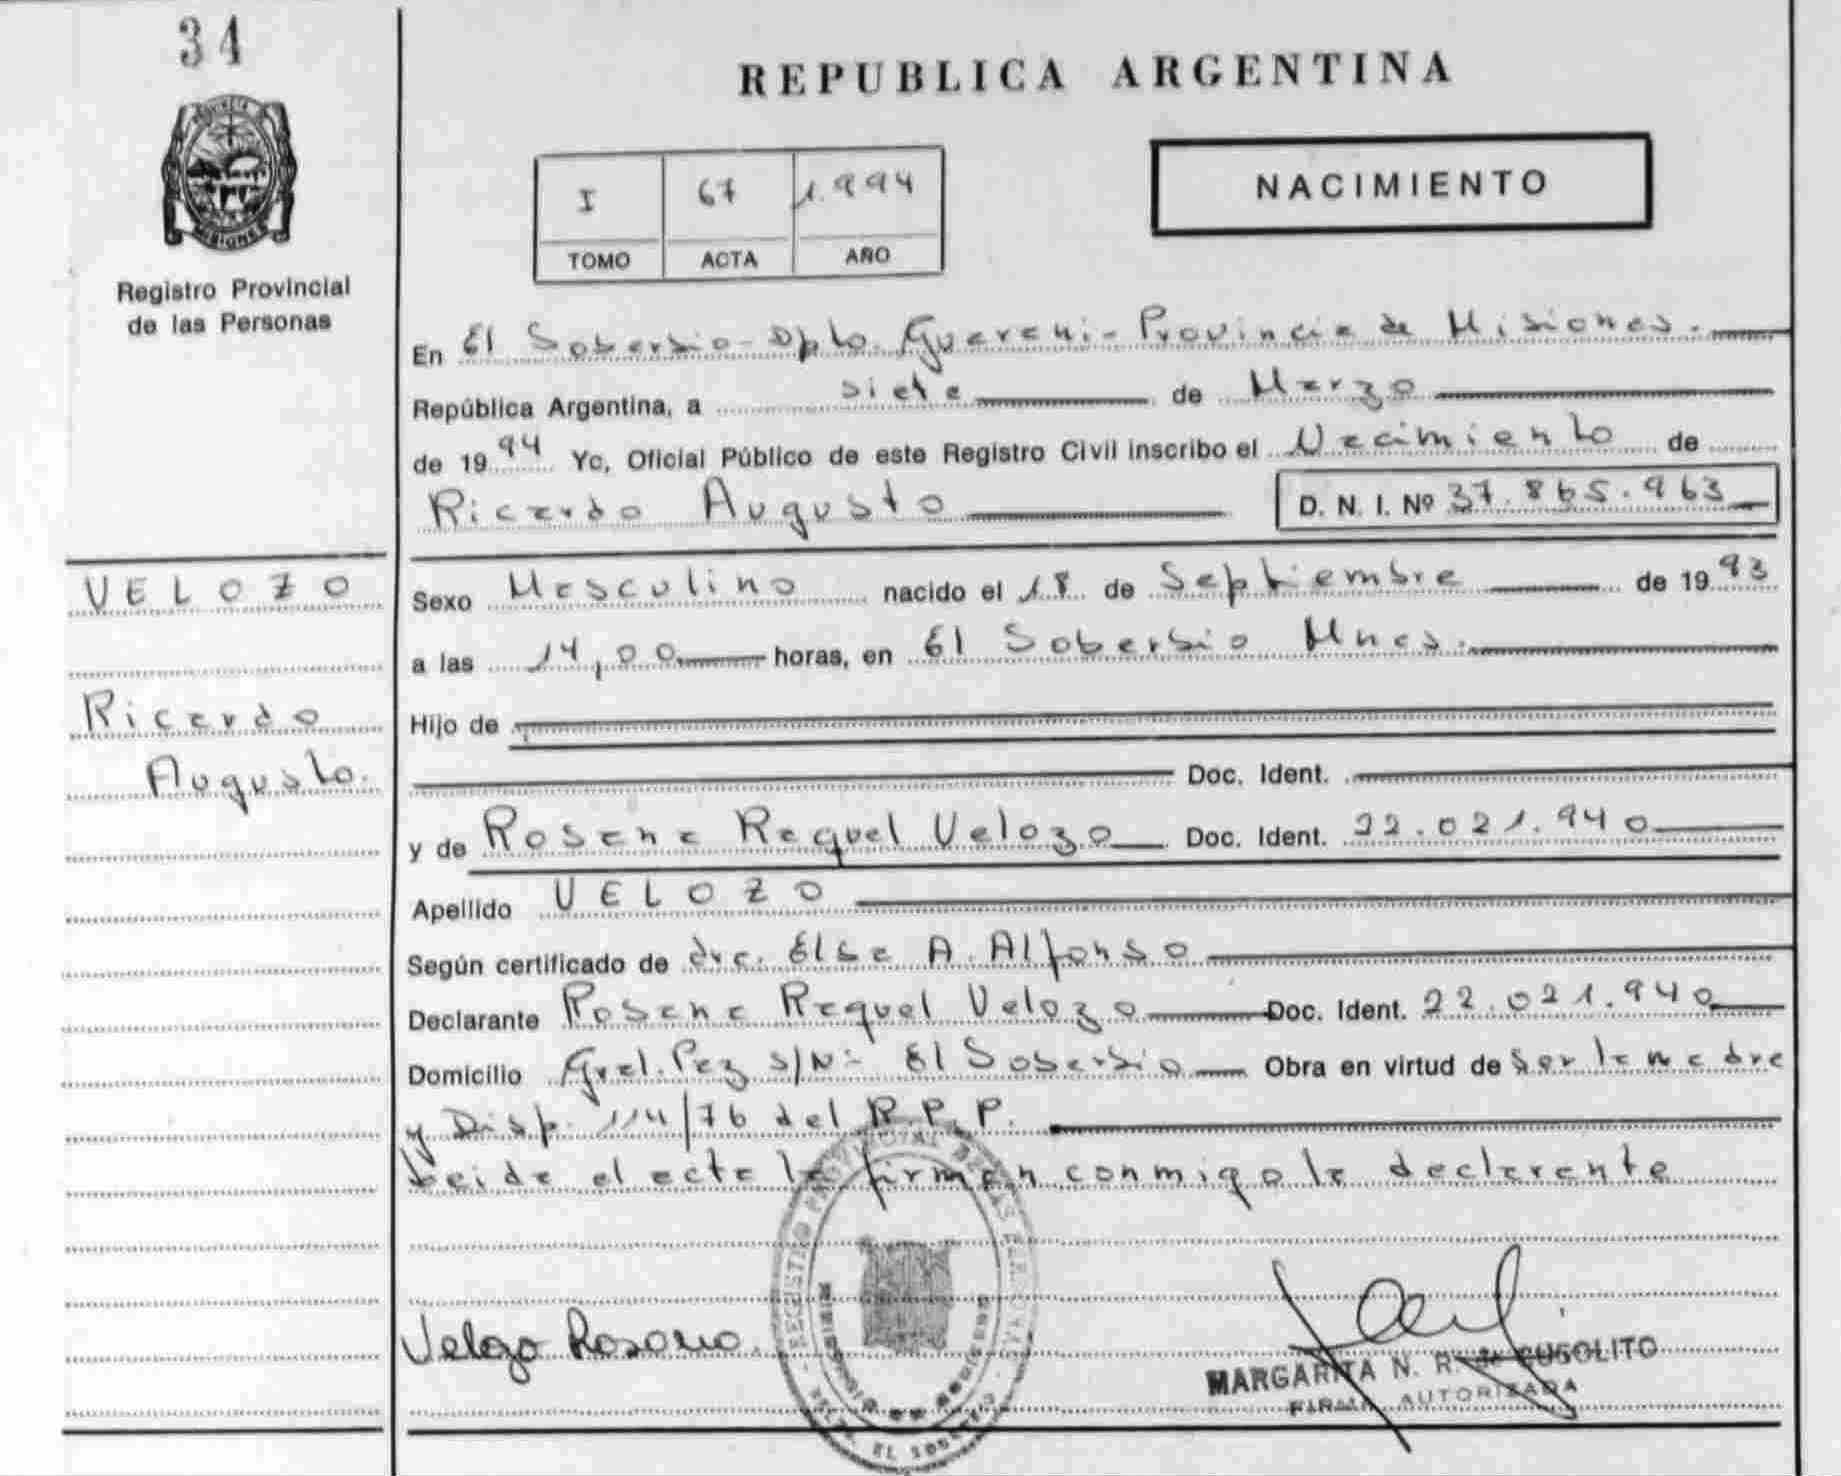 34
PROVINCIA
MISIONES
Registro Provincial
de las Personas
VELOZO
Ricardo
Augusto.
REPUBLICA ARGENTINA
I 67 1.994
TOMO ACTA AÑO
NACIMIENTO
En El Soberbio - Dpto. Guarani - Provincia de Misiones.
República Argentina, a siete de Marzo
de 1994 Yo, Oficial Público de este Registro Civil inscribo el Nacimiento de
Ricardo Augusto D. N. I. Nº 37.865.963
Sexo Masculino nacido el 18 de Septiembre de 1993
a las 14,00 horas, en El Soberbio Mnes.
Hijo de
Doc. Ident.
y de Rosana Raquel Velozo Doc. Ident. 22.021.940
Apellido VELOZO
Según certificado de dra. Elsa A. Alfonso
Declarante Rosana Raquel Velozo Doc. Ident. 22.021.940
Domicilio Gral. Paz s/Nº El Soberbio Obra en virtud de ser la madre
y Disp. 114/76 del R.P.P.
Leida el acta la firman conmigo la declarante
Velozo Rosana.
MARGARITA N. R. de CUSOLITO
FIRMA AUTORIZADA
REGISTRO PROVINCIAL DE LAS PERSONAS
EL SOBERBIO